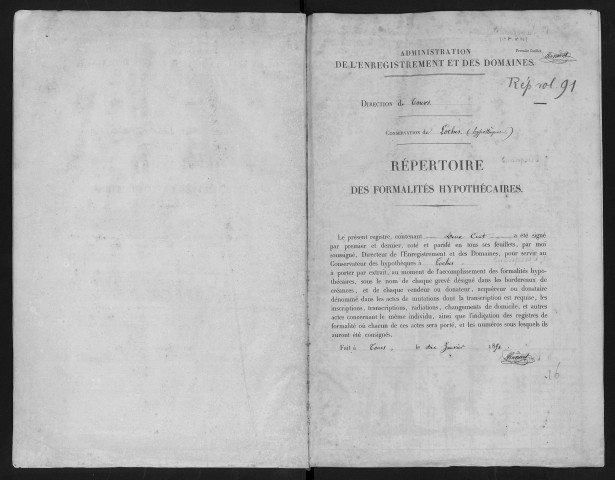 ADMINISTRATION
DE L'ENREGISTREMENT ET DES DOMAINES.
Rép. vol. 91
DIRECTION de Tours
CONSERVATION de Loches (hypothèques)
RÉPERTOIRE
DES FORMALITÉS HYPOTHÉCAIRES.
Le présent registre, contenant deux Cent a été signé
par premier et dernier, coté et paraphé en tous ses feuillets, par moi
soussigné, Directeur de l'Enregistrement et des Domaines, pour servir au
Conservateur des hypothèques à Loches
à porter par extrait, au moment de l'accomplissement des formalités hypo-
thécaires, sous le nom de chaque grevé désigné dans les bordereaux de
créances, et de chaque vendeur ou donateur, acquéreur ou donataire
dénommé dans les actes de mutations dont la transcription est requise, les
inscriptions, transcriptions, radiations, changements de domicile, et autres
actes concernant le même individu, ainsi que l'indication des registres de
formalité où chacun de ces actes sera porté, et les numéros sous lesquels ils
auront été consignés.
Fait à Tours, le Janvier